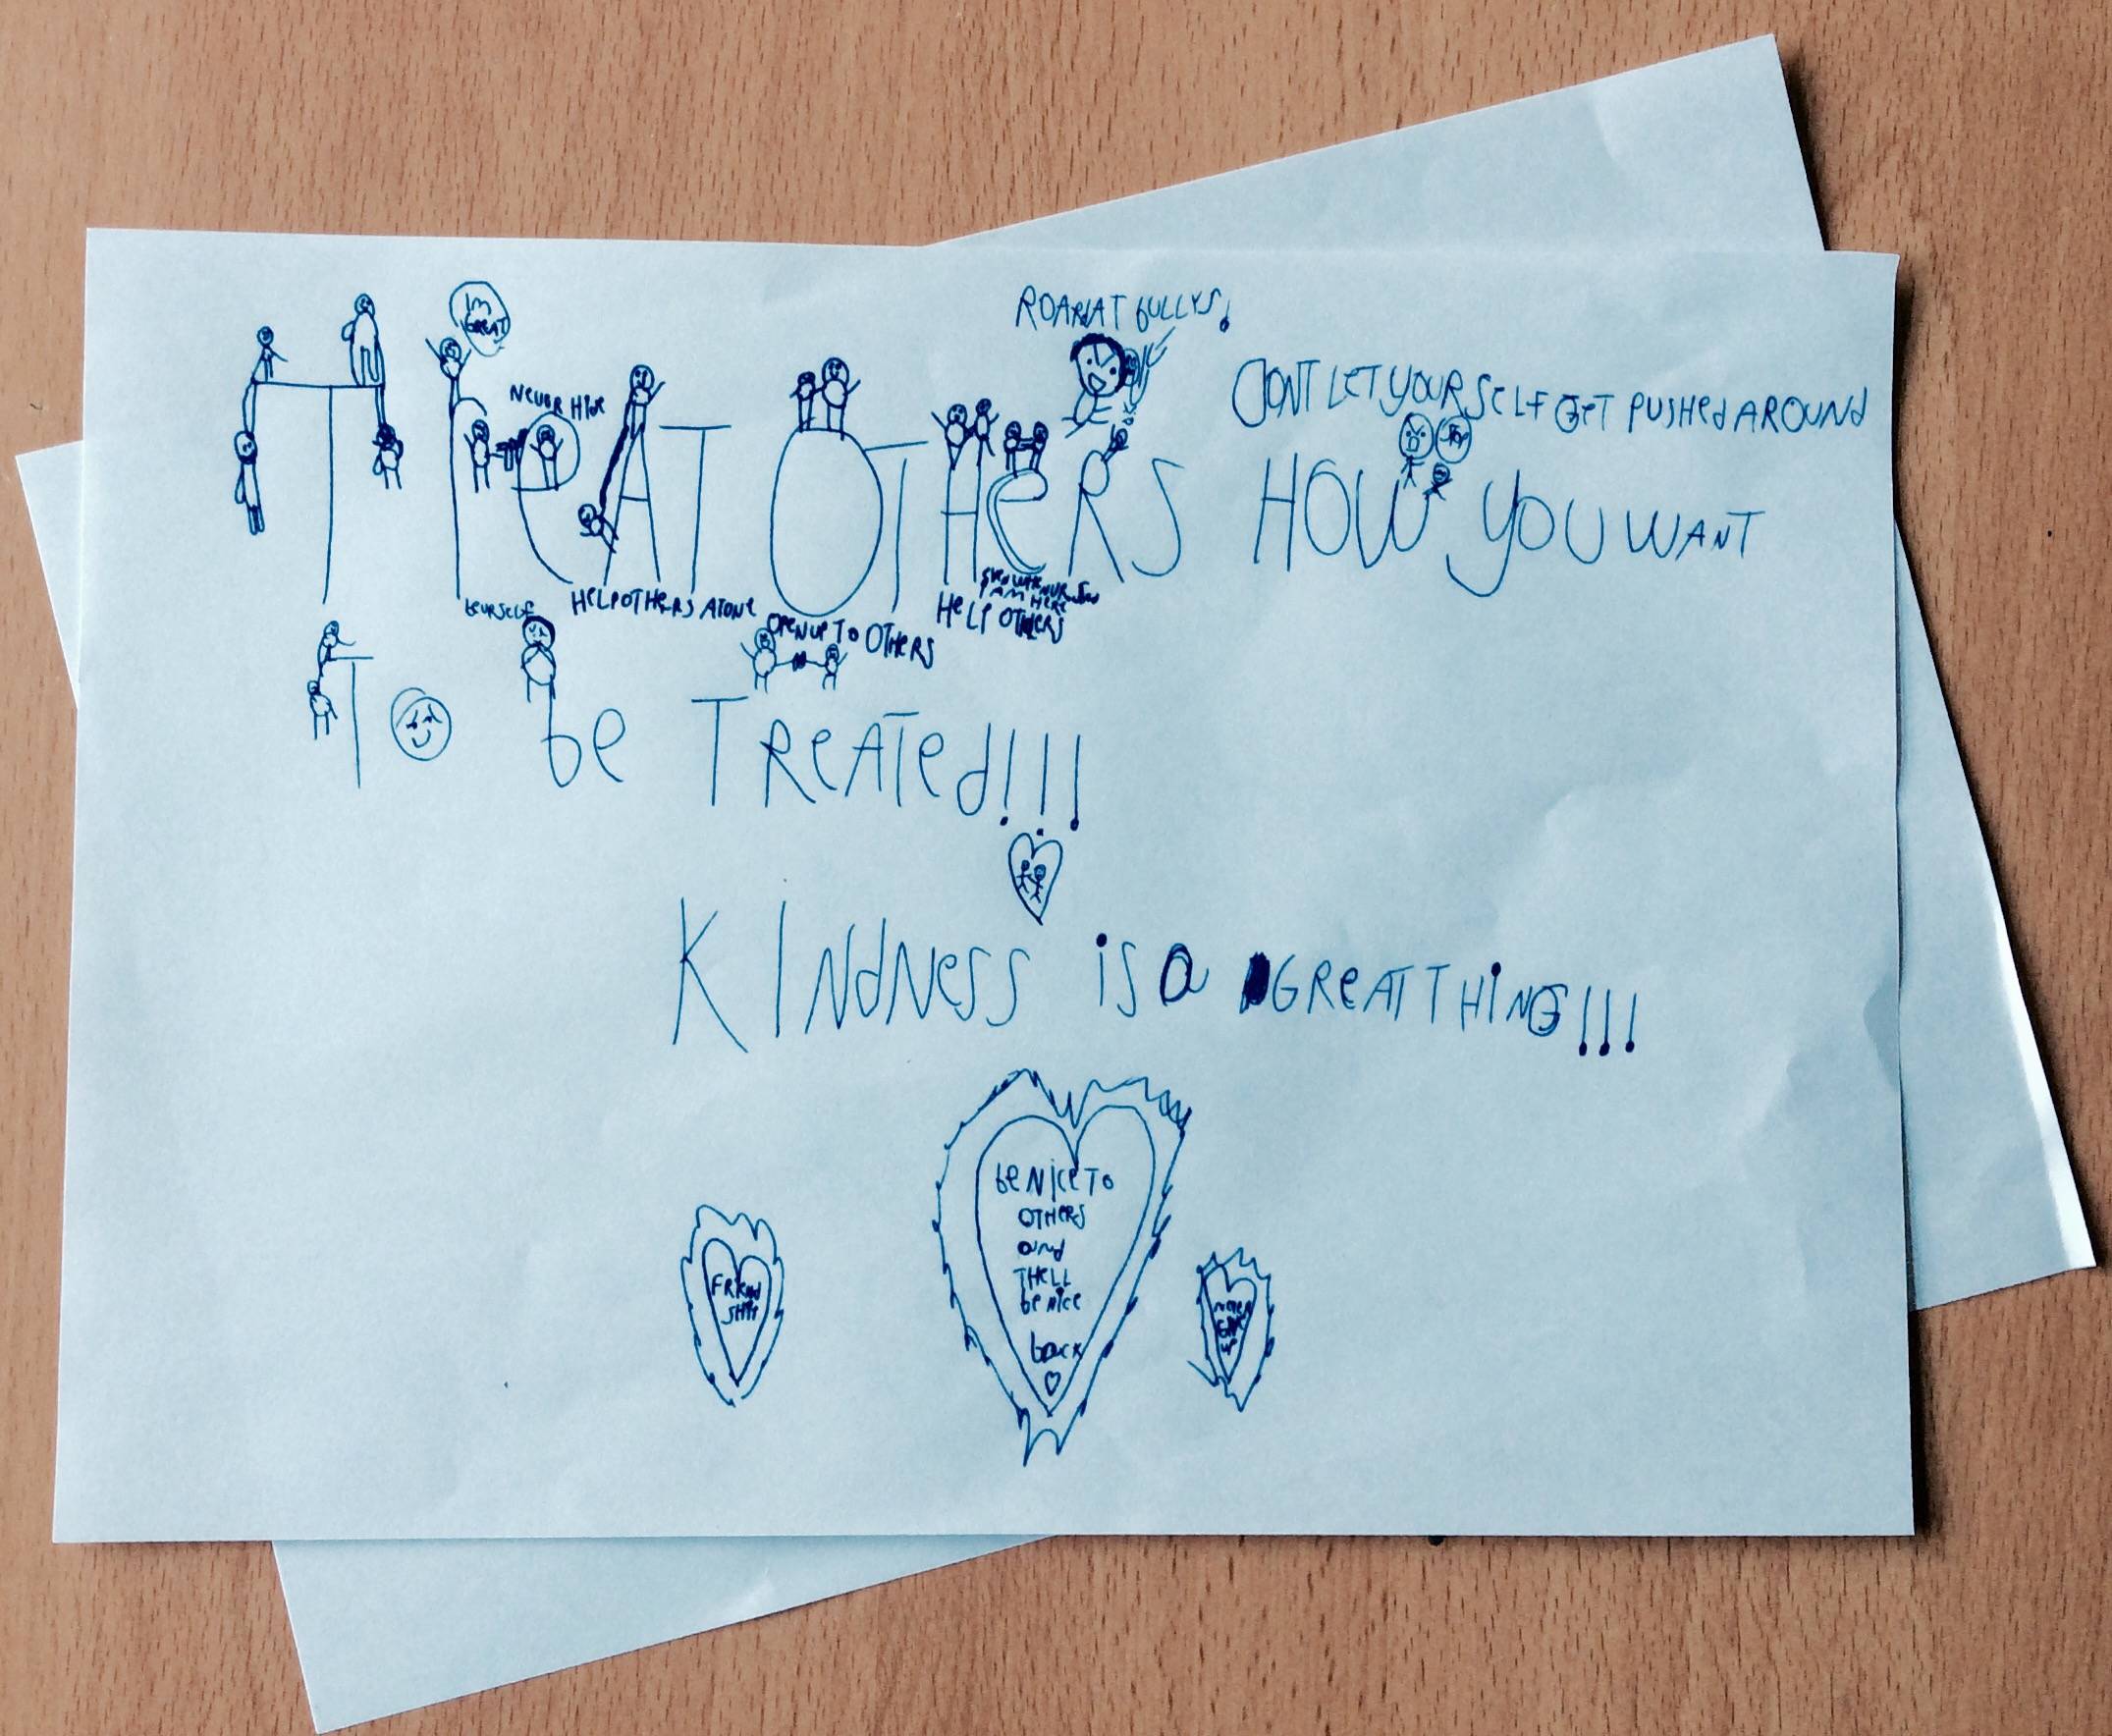 IM
GREAT
ROAR AT BULLYS!
NEVER HIDE
DONT LET YOURSELF GET PUSHED AROUND
TReAT OTHeRS HOW YOU WANT
be URSeLF
HeLP OTHeRS ALONe
OPeN UP TO OTHeRS
HeLP OTHeRS
TO be TReATed!!!
KINdNeSS iS a GReAT THiNG!!!
be Nice TO
OTHeRS
and
THeLL
be Nice
back
FRIeNd
SHIP
NeVeR
GIVe
UP